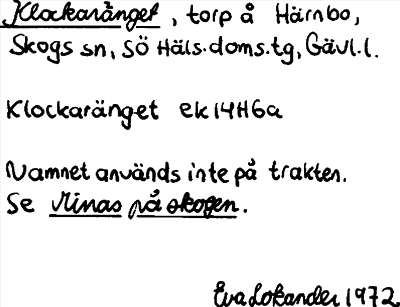 Klockaränget, torp å Härnbo,
Skogs sn, Sö Häls.doms.tg, Gävl.l.
Klockaränget ek14H6a
Namnet används inte på trakten.
Se Minas på skogen.
Eva Lokander 1972